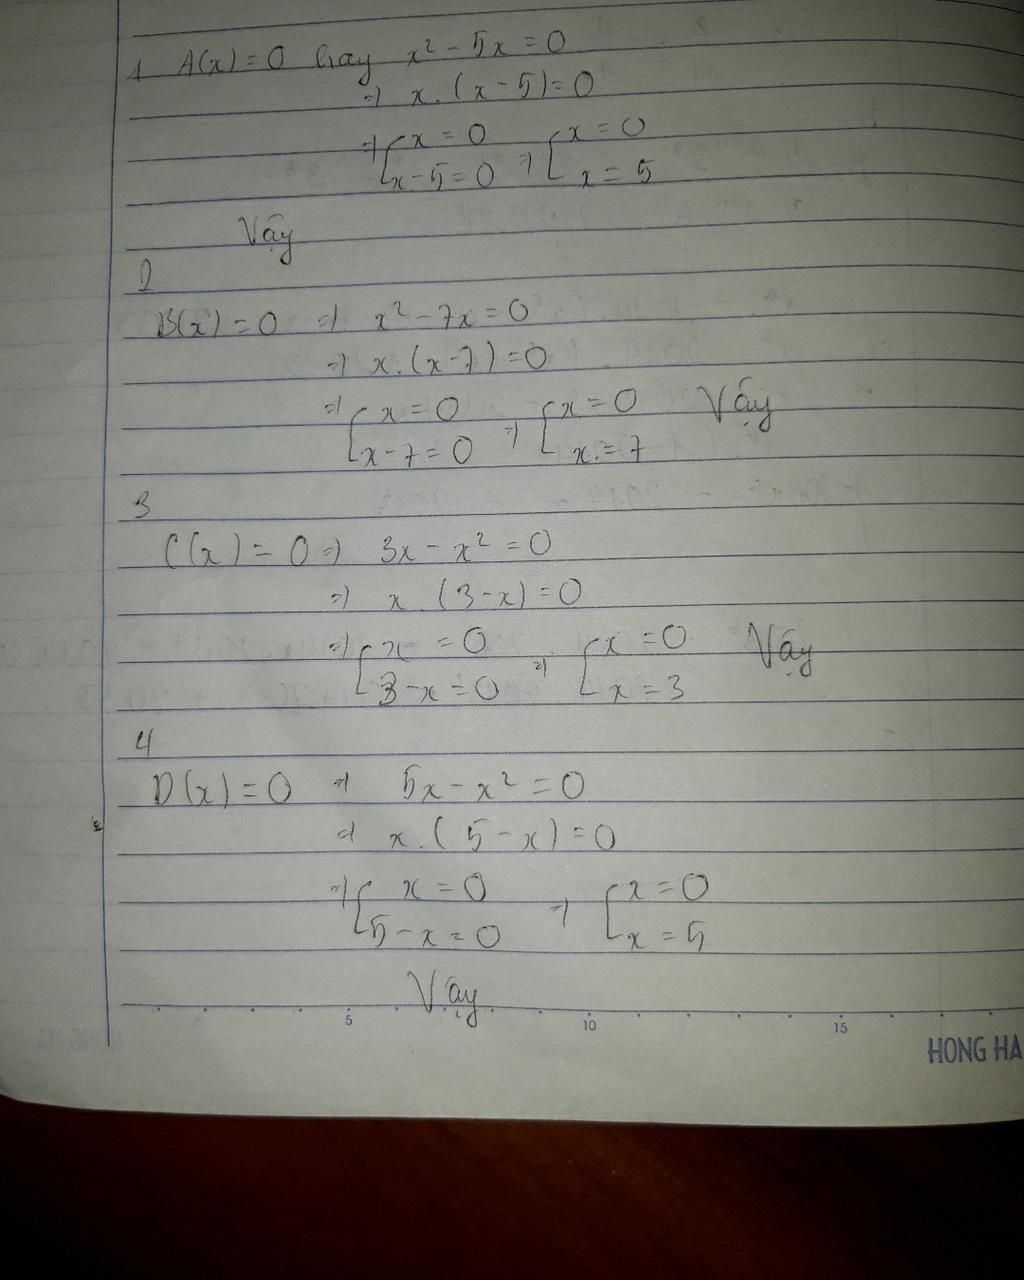 1 A(x) = 0 hay x² - 5x = 0
=> x. (x - 5) = 0
=> [ x = 0 => [ x = 0
x - 5 = 0 x = 5
Vậy
2
B(x) = 0 => x² - 7x = 0
=> x. (x - 7) = 0
=> [ x = 0 => [ x = 0 Vậy
x - 7 = 0 x = 7
3
C(x) = 0 => 3x - x² = 0
=> x. (3 - x) = 0
=> [ x = 0 => [ x = 0 Vậy
3 - x = 0 x = 3
4
D(x) = 0 => 5x - x² = 0
=> x. (5 - x) = 0
=> [ x = 0 => [ x = 0
5 - x = 0 x = 5
Vậy
5 10 15
HONG HA